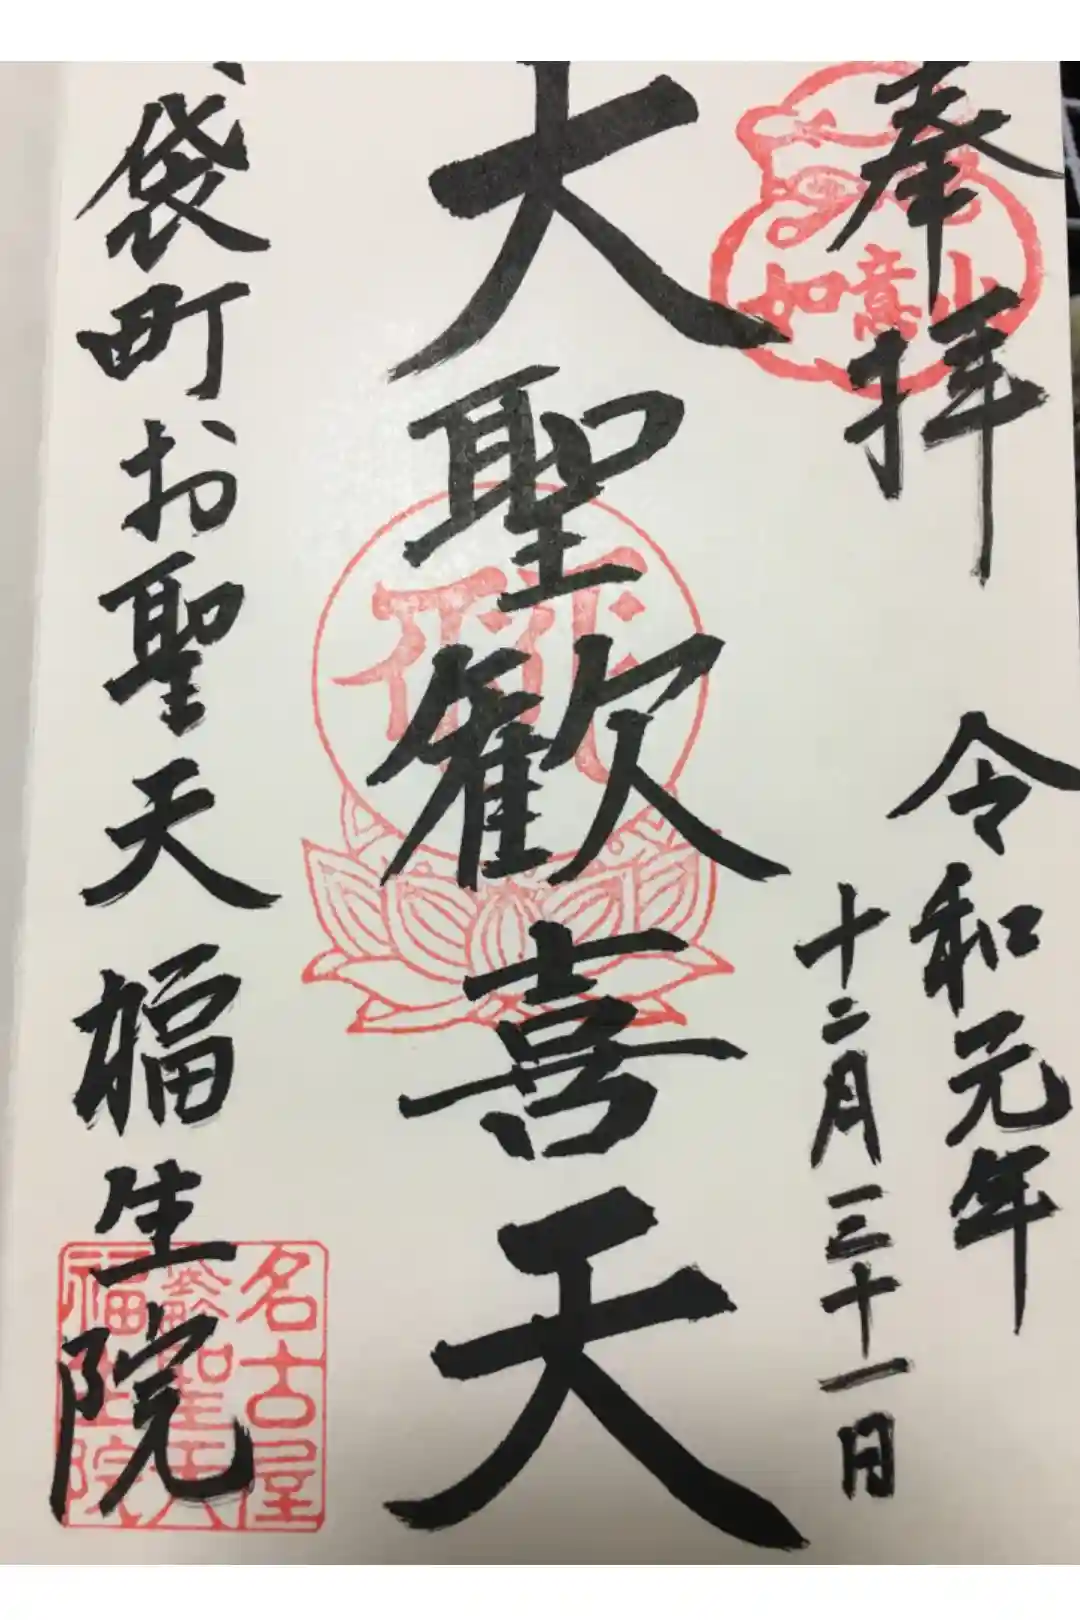 奉拝
如意山
令和元年
十二月三十一日
大聖歓喜天
袋町お聖天福生院
名古屋
聖天
福生院